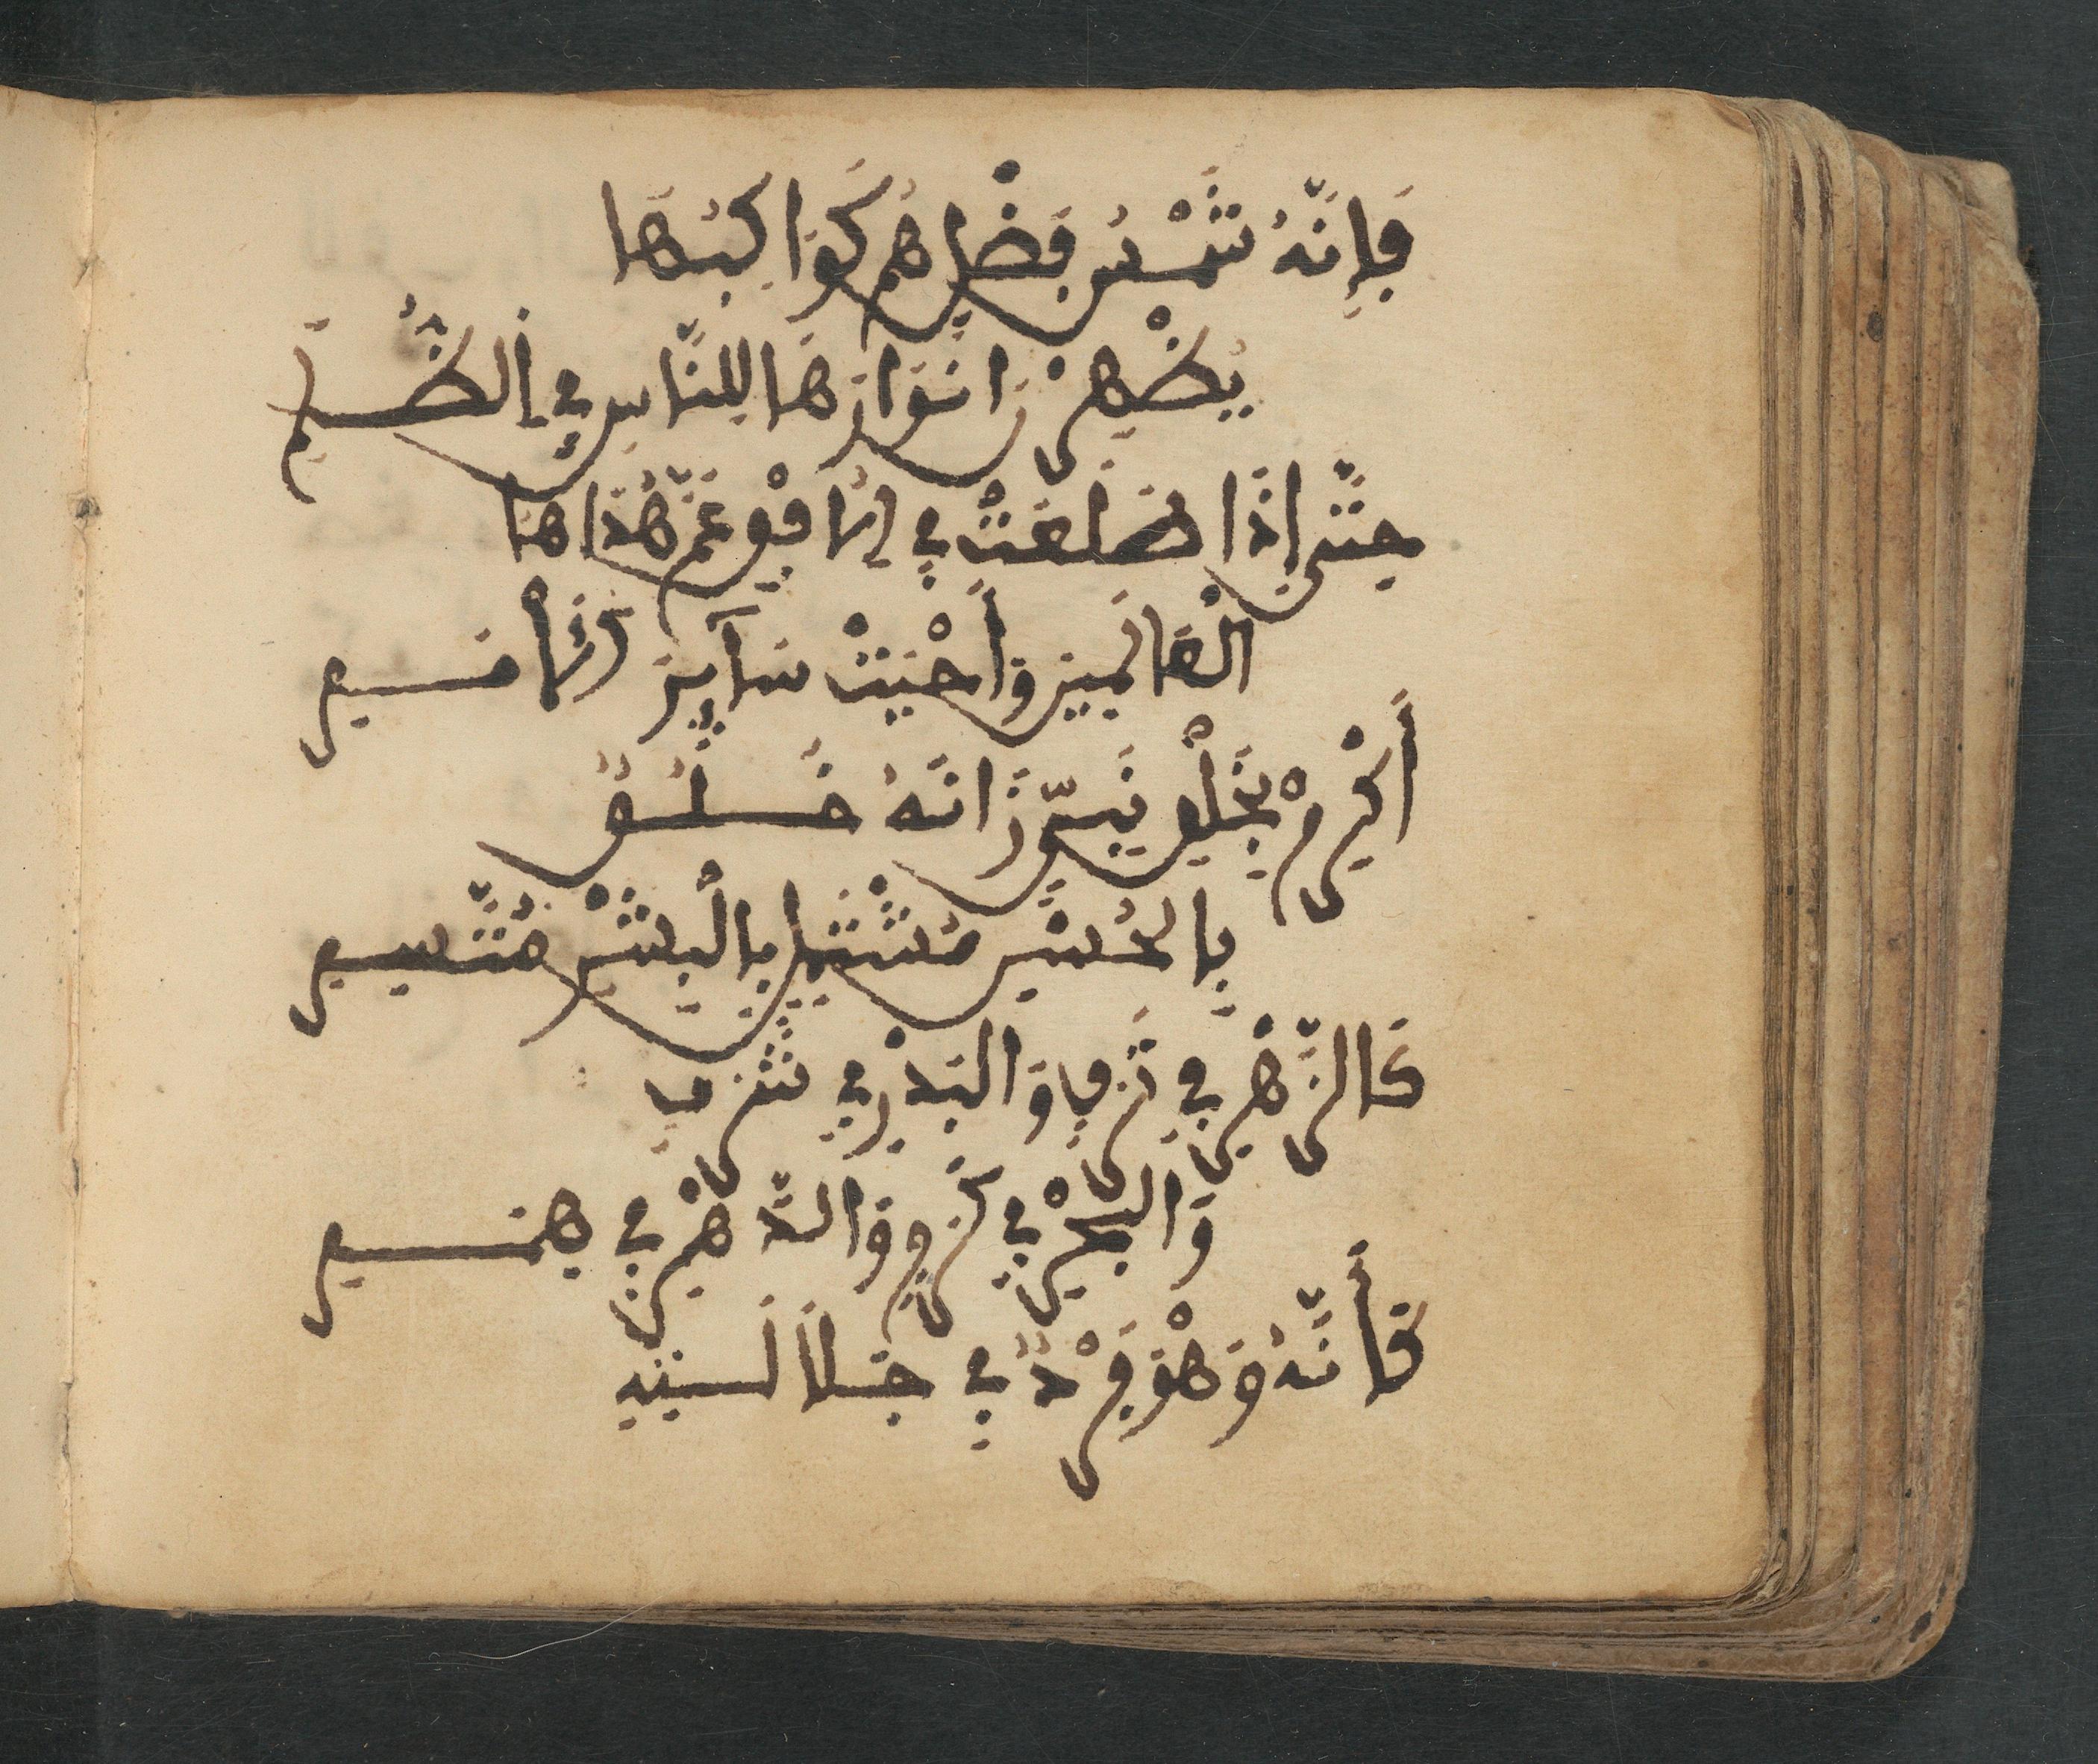 فَإِنَّهُ شَمْسُ فَضْلٍ هُمْ كَوَاكِبُهَا
يُظْهِرْنَ انْوَارَهَا لِلنَّاسِ فِي الظُّلَمِ
حَتَّى إِذَا طَلَعَتْ فِي الافْقِ عَمَّ هُدَاهَا
الْعَالَمِينَ وَأَحْيَتْ سَآئِرَ الأُمَمِ
أَكْرِمْ بِخَلْقِ نَبِيٍّ زَانَهُ خُلُقٌ
بِالْحُسْنِ مُشْتَمِلٍ بِالْبِشْرِ مُتَّسِمِ
كَالزَّهْرِ فِي تَرَفٍ وَالْبَدْرِ فِي شَرَفٍ
وَالْبَحْرِ فِي كَرَمٍ وَالدَّهْرِ فِي هِمَمِ
كَأَنَّهُ وَهْوَ فَرْدٌ فِي جَلَالَتِهِ